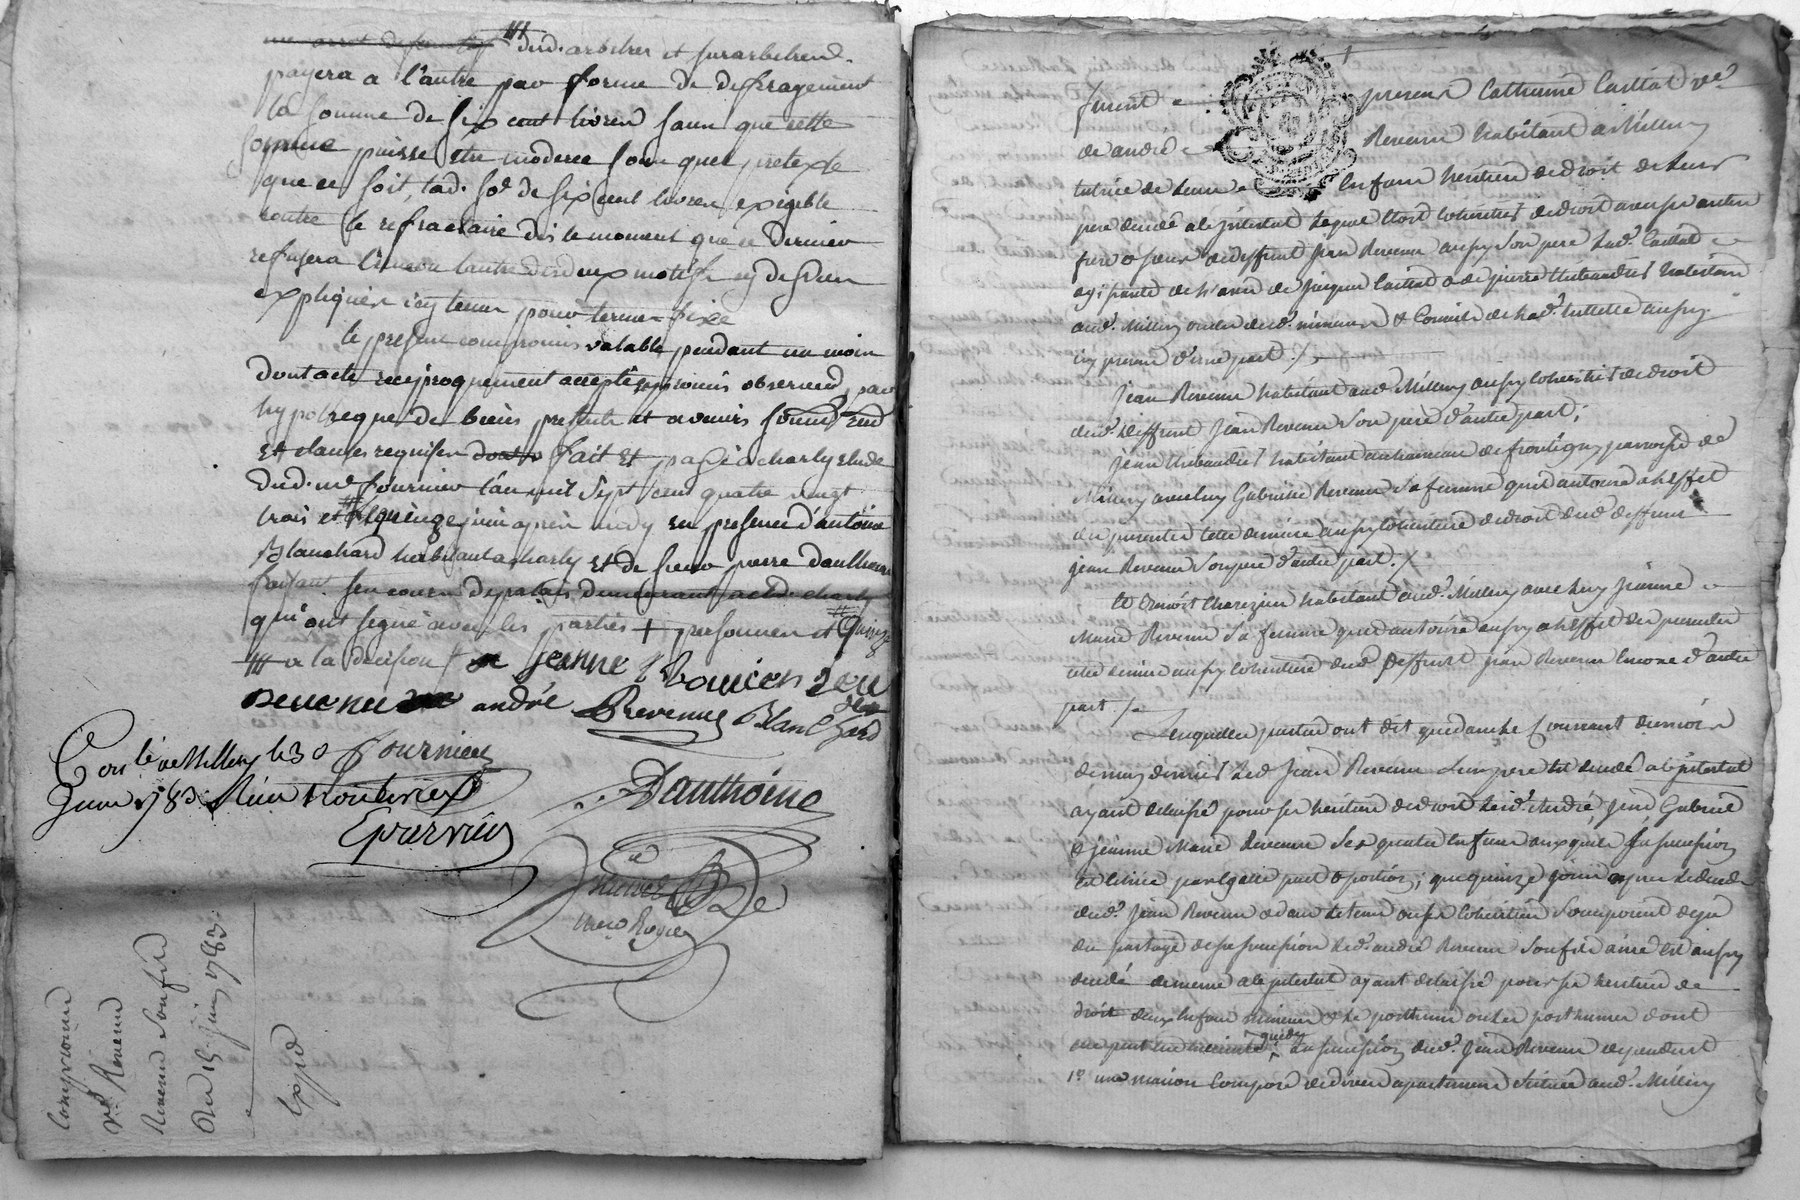 dud. arbitres et surarbitres.
payera a l'autre par forme de defragement
la somme de six cent livres sans que cette
somme puisse etre moderée sous quel pretexte
que ce soit, lad. so.e de six cent livres exigible
contre le refractaire des le moment que ce dernier
refusera l'un ou l'autre desd. deux motifs cy dessus
expliqués icy tenus pour terme fixe
le present compromis valable pendant un mois
dont acte reciproquement accepté promis observer, par
hypotheque de biens presents et avenirs soumis. renon.
et clauses requises fait et passé a charly etude
dud. me fournier l'an mil sept cent quatre vingt
trois et le quinze juin après midy en presence d'antoine
Blanchard habitant a charly et de sieur pierre dauthoine
faisant son cours de palais demeurant aud. charly
qui ont signé avec les parties + personnes et # quinze
# a la decision
revenu andré Revenu Blanchard
Con.lé a Millery le 30 Fournier
Juin 1783. Reçu
Dauthoine
Epurvier
no.re Royal
Compromis
ve. Revenu
Revenu Son fils
Du 15. Juin 1783.
Expd
furent presens Catherine Caillat ve.
de andré Revenu habitant a Millery
tutrice de leurs enfans heritiers de droit de leur
pere decedé ab intestat lequel etoit coheritier de droit avec ses autres
frere & soeurs de deffunt Jean Revenu aussy son pere lad. Caillat
agissante de l'avis de Jacques Caillat & de pierre thibaudier habitans
aud. Millery oncles desd. mineurs & Conseils de lad. tutelle aussy
icy presens d'une part ./.
Jean Revenu habitant aud. Millery aussy coheritier de droit
dud. deffunt Jean Revenu son pere d'autre part;
Jean thibaudier habitant au hameau de frontigny parroisse de
Millery avec luy Gabrielle Revenu sa femme qu'il autorise a l'effet
des presentes cette derniere aussy coheritiere de droit dud. deffunt
Jean Revenu son pere d'autre part. /.
et Benoist Charezieu habitant aud. Millery avec luy Jeanne
Marie Revenu sa femme qu'il autorise aussy a l'effet des presentes
cette derniere aussy coheritiere dud. deffunt Jean Revenu encore d'autre
part ./.
Lesquelles parties ont dit que dans le Courrant du mois
de may dernier led. Jean Revenu leur pere est decedé ab intestat
ayant delaissé pour ses heritiers de droit lesd. André, Jean Gabriel
& Jeanne Marie Revenu ses quatre enfans auxquels sa succession
est échue par egalle part & portion; que quinze jours après le decès
dud. Jean Revenu & dans le tems ou ses coheritiers s'occupoient deja
du partage de sa succession led. andré Revenu son fils ainé est aussy
decedé de meme ab intestat ayant delaissé pour ses heritiers de
droit deux enfans mineurs & le posthume ou les posthumes dont
la succession dud. Jean Revenu dependent
1o. une maison Composée de divers apartemens située aud. Millery